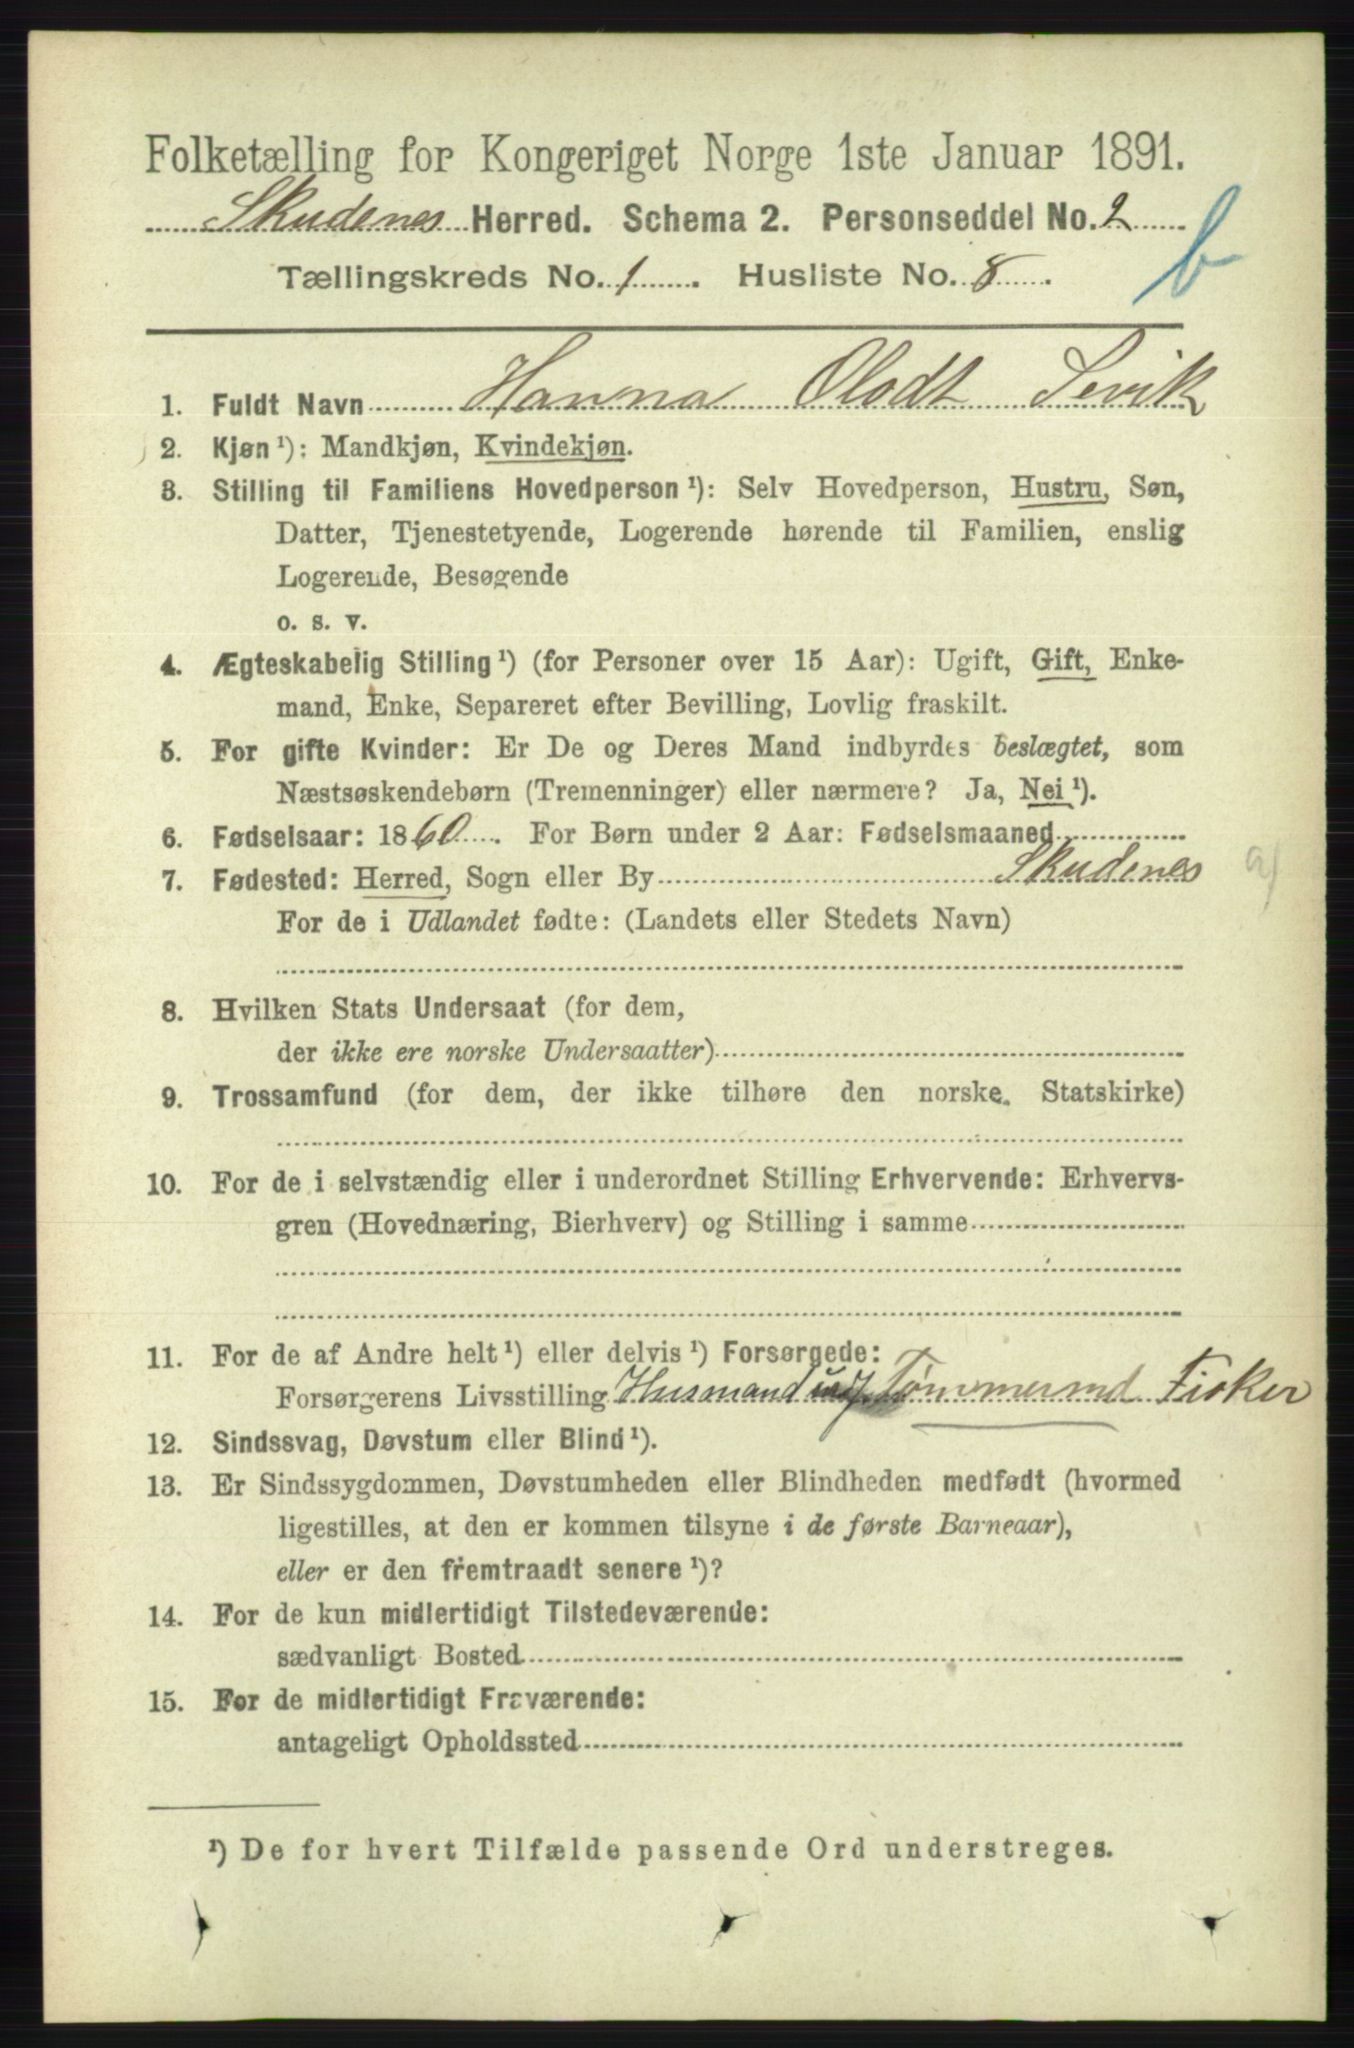 Folketælling for Kongeriget Norge 1ste Januar 1891.
Skudenes Herred. Schema 2. Personseddel No. 2
b
Tællingskreds No. 1. Husliste No. 8.
1. Fuldt Navn Hanna Olsdt Sevik
2. Kjøn ¹): Mandkjøn, Kvindekjøn.
3. Stilling til Familiens Hovedperson ¹): Selv Hovedperson, Hustru, Søn,
Datter, Tjenestetyende, Logerende hørende til Familien, enslig
Logerende, Besøgende
o. s. v.
4. Ægteskabelig Stilling ¹) (for Personer over 15 Aar): Ugift, Gift, Enke-
mand, Enke, Separeret efter Bevilling, Lovlig fraskilt.
5. For gifte Kvinder: Er De og Deres Mand indbyrdes beslægtet, som
Næstsøskendebørn (Tremenninger) eller nærmere? Ja, Nei ¹).
6. Fødselsaar: 1860. For Børn under 2 Aar: Fødselsmaaned
7. Fødested: Herred, Sogn eller By Skudenes
For de i Udlandet fødte: (Landets eller Stedets Navn)
8. Hvilken Stats Undersaat (for dem,
der ikke ere norske Undersaatter)
9. Trossamfund (for dem, der ikke tilhøre den norske Statskirke)
10. For de i selvstændig eller i underordnet Stilling Erhvervende: Erhvervs-
gren (Hovednæring, Bierhverv) og Stilling i samme
11. For de af Andre helt ¹) eller delvis ¹) Forsørgede:
Forsørgerens Livsstilling Husmand Tømmermd Fisker
12. Sindssvag, Døvstum eller Blind ¹).
13. Er Sindssygdommen, Døvstumheden eller Blindheden medfødt (hvormed
ligestilles, at den er kommen tilsyne i de første Barneaar),
eller er den fremtraadt senere ¹)?
14. For de kun midlertidigt Tilstedeværende:
sædvanligt Bosted
15. For de midlertidigt Fraværende:
antageligt Opholdssted
¹) De for hvert Tilfælde passende Ord understreges.